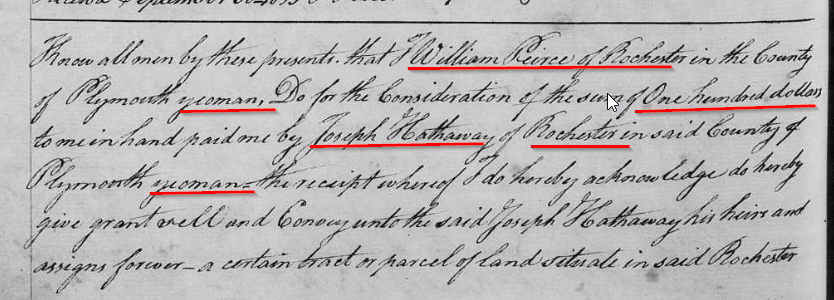 Know all men by these presents that I William Peirce of Rochester in the County
of Plymouth yeoman, Do for the Consideration of the sum of One hundred dollars
to me in hand paid me by Joseph Hathaway of Rochester in said County of
Plymouth yeoman - the receipt whereof I do hereby acknowledge do hereby
give grant sell and Convey unto the said Joseph Hathaway his heirs and
assigns forever - a certain tract or parcel of land situate in said Rochester